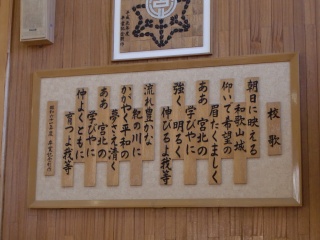 校歌
朝日に映える
和歌山城
仰いで希望の
眉たくましく
ああ 宮北の
学びやに
強く 明るく
伸びるよ我等
流れ豊かな
紀の川に
かがやく平和の
夢さえ清く
ああ 宮北の
学びやに
仲よくともに
育つよ我等